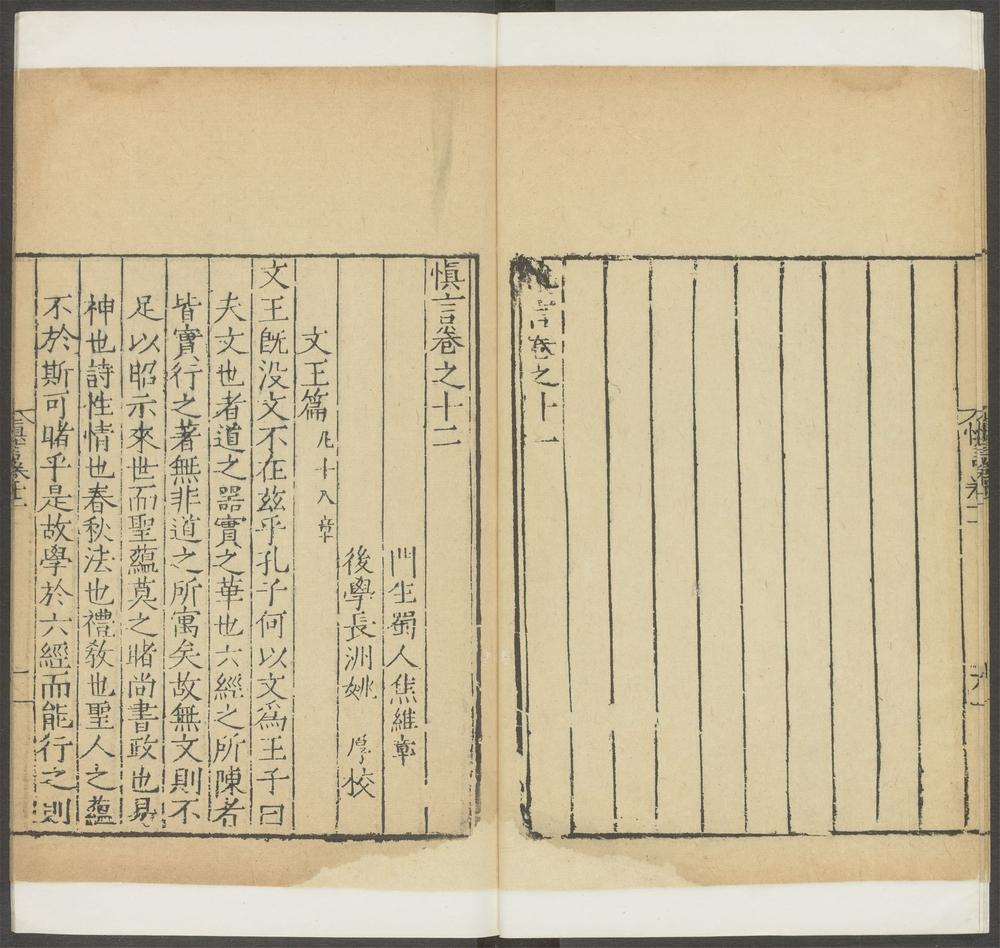 慎言卷之十一
慎言卷之十二
門生蜀人焦維章
後學長洲姚 厚校
文王篇凡十八章
文王旣没文不在兹乎孔子何以文爲王子曰
夫文也者道之器實之華也六經之所陳者
皆實行之著無非道之所寓矣故無文則不
足以昭示來世而聖蘊莫之睹尚書政也易
神也詩性情也春秋法也禮敎也聖人之蘊
不於斯可睹乎是故學於六經而能行之則